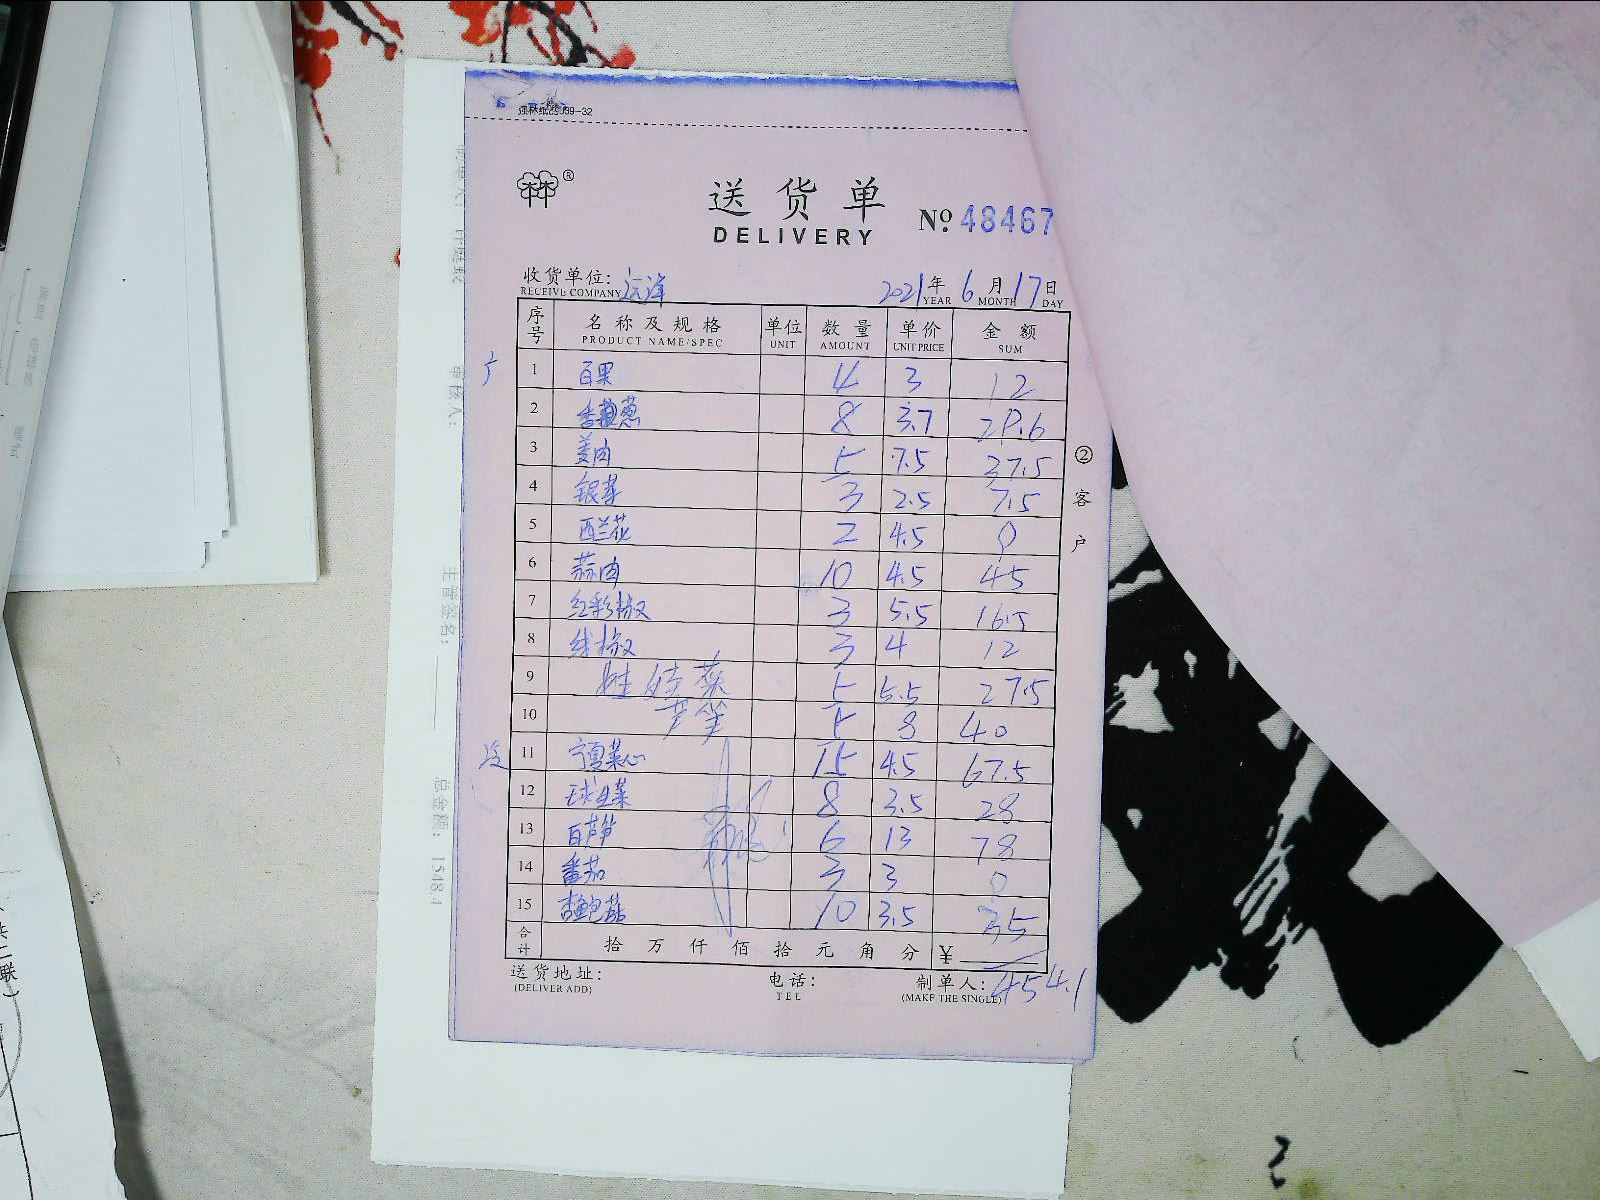 强林纸品 J99-32
®
送货单
DELIVERY
No. 48467
收货单位: 远洋 2021年 6月 17日
RECEIVE COMPANY YEAR MONTH DAY
序号 名称及规格 单位 数量 单价 金额
PRODUCT NAME/SPEC UNIT AMOUNT UNIT PRICE SUM
1 百果 4 3 12
2 香葱 8 3.7 29.6
3 姜肉 5 7.5 37.5
4 银芽 3 2.5 7.5
5 西兰花 2 4.5 0
6 蒜肉 10 4.5 45
7 红彩椒 3 5.5 16.5
8 线椒 3 4 12
9 娃娃菜 5 5.5 27.5
10 芦笙 5 8 40
11 宁夏菜心 15 4.5 67.5
12 球生菜 8 3.5 28
13 白芦笋 6 13 78
14 番茄 3 3 0
15 杏鲍菇 10 3.5 35
合计 拾万仟佰拾元角分 ¥
454.1
送货地址: 电话: 制单人:
(DELIVER ADD) TEL (MAKE THE SINGLE)
②客户
审核人:
主管签名:
总金额: 1548.4